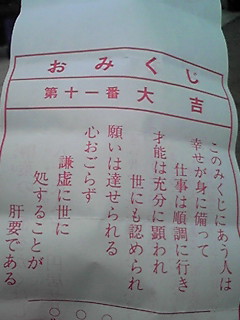 おみくじ
第十一番 大吉
このみくじにあう人は
幸せが身に備って
仕事は順調に行き
才能は充分に顕われ
世にも認められ
願いは達せられる
心おごらず
謙虚に世に
処することが
肝要である